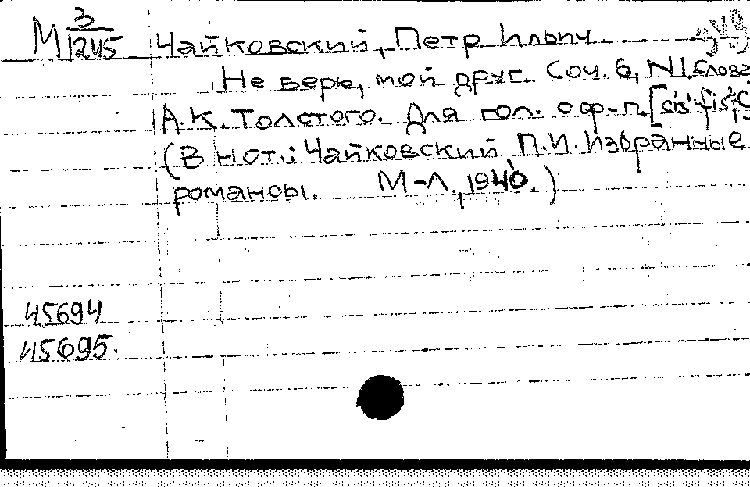 М 3/1245 Чайковский, Петр Ильич.
Не верь, мой друг. Соч. 6, N1. Слова
А.К. Толстого. Для гол. с ф-п.
(В нот.: Чайковский П.И. Избранные
романсы. М-Л., 1940.)
45694
45695.